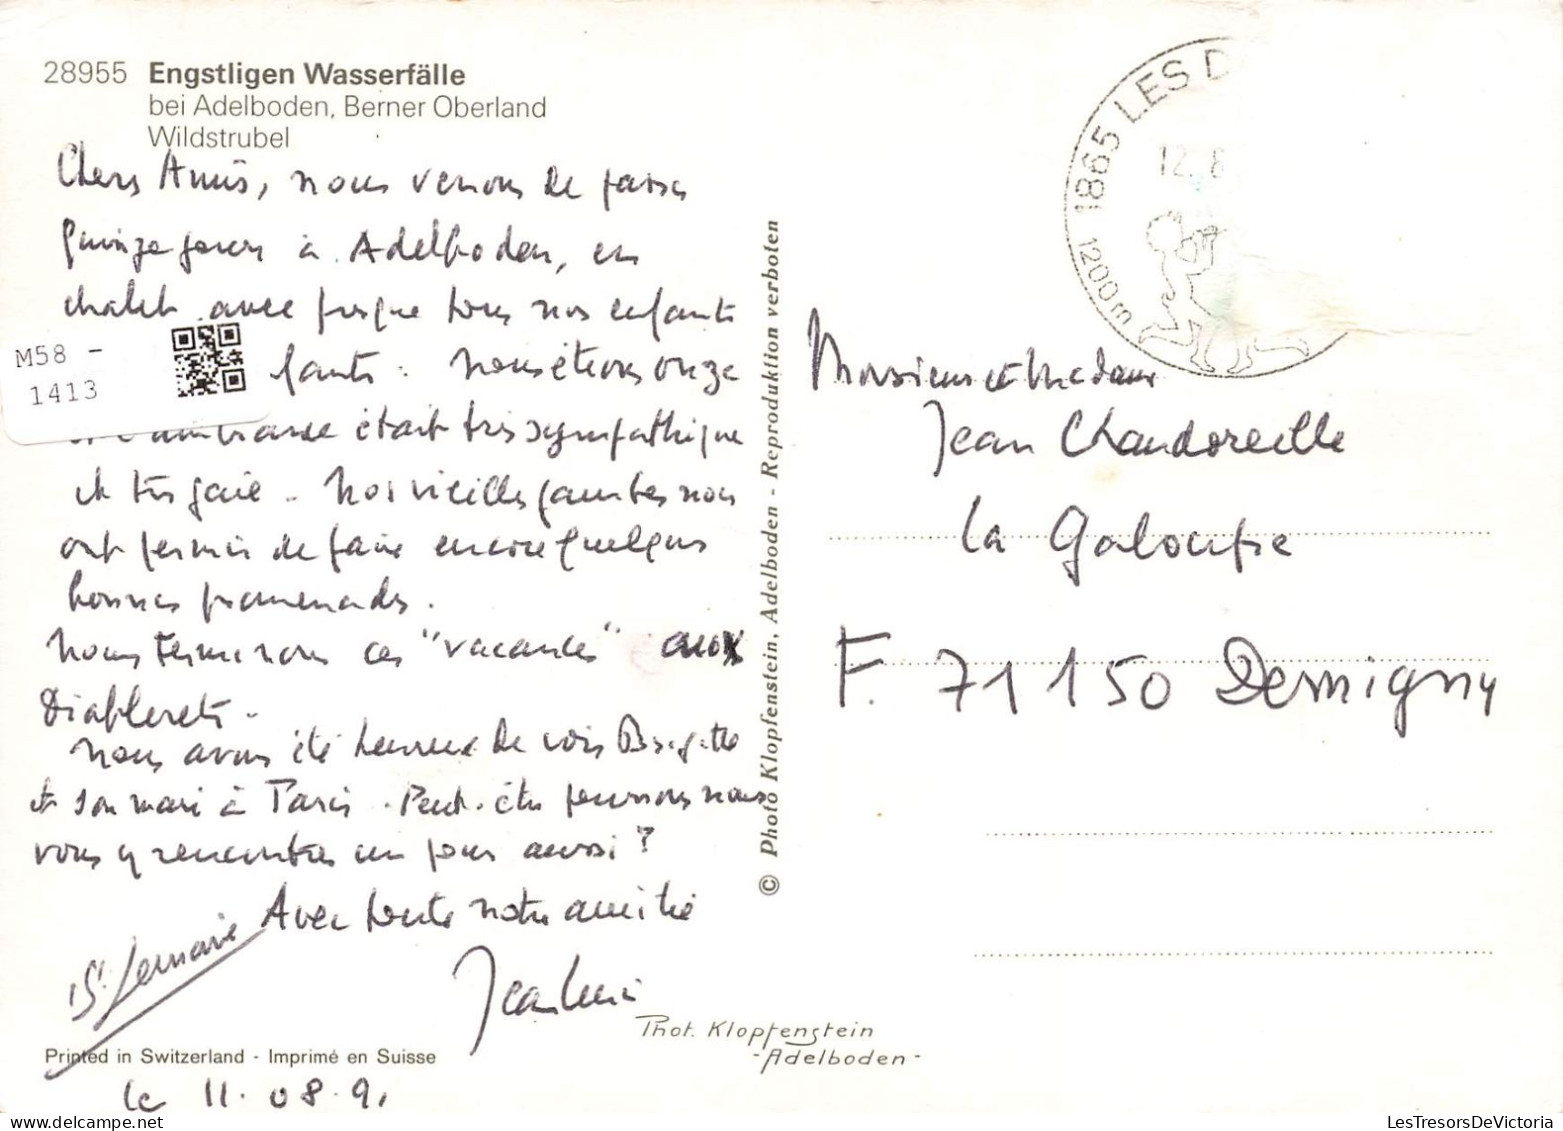 28955 Engstligen Wasserfälle
bei Adelboden, Berner Oberland
Wildstrubel
Chers Amis, nous venons de passer
quinze jours à Adelboden, en
chalet avec presque tous nos enfants
M58 -
1413
fants. Nous étions onze
et l'ambiance était très sympathique
et très gaie. Nos vieilles jambes nous
ont permis de faire encore quelques
bonnes promenades.
Nous terminons ces "vacances" aux
Diablerets.
Nous avons été heureux de voir Brigitte
et son mari à Paris. Peut-être pourrons nous
vous y rencontrer un jour aussi?
Avec toute notre amitié
Printed in Switzerland - Imprimé en Suisse
le 11.08.91
© Photo Klopfenstein, Adelboden - Reproduktion verboten
Phot. Klopfenstein
-Adelboden-
1865 LES D
12.8
1200m
Monsieur et Madame
Jean Chandoreille
La Galoupe
F. 71150 Demigny
LesTresorsDeVictoria